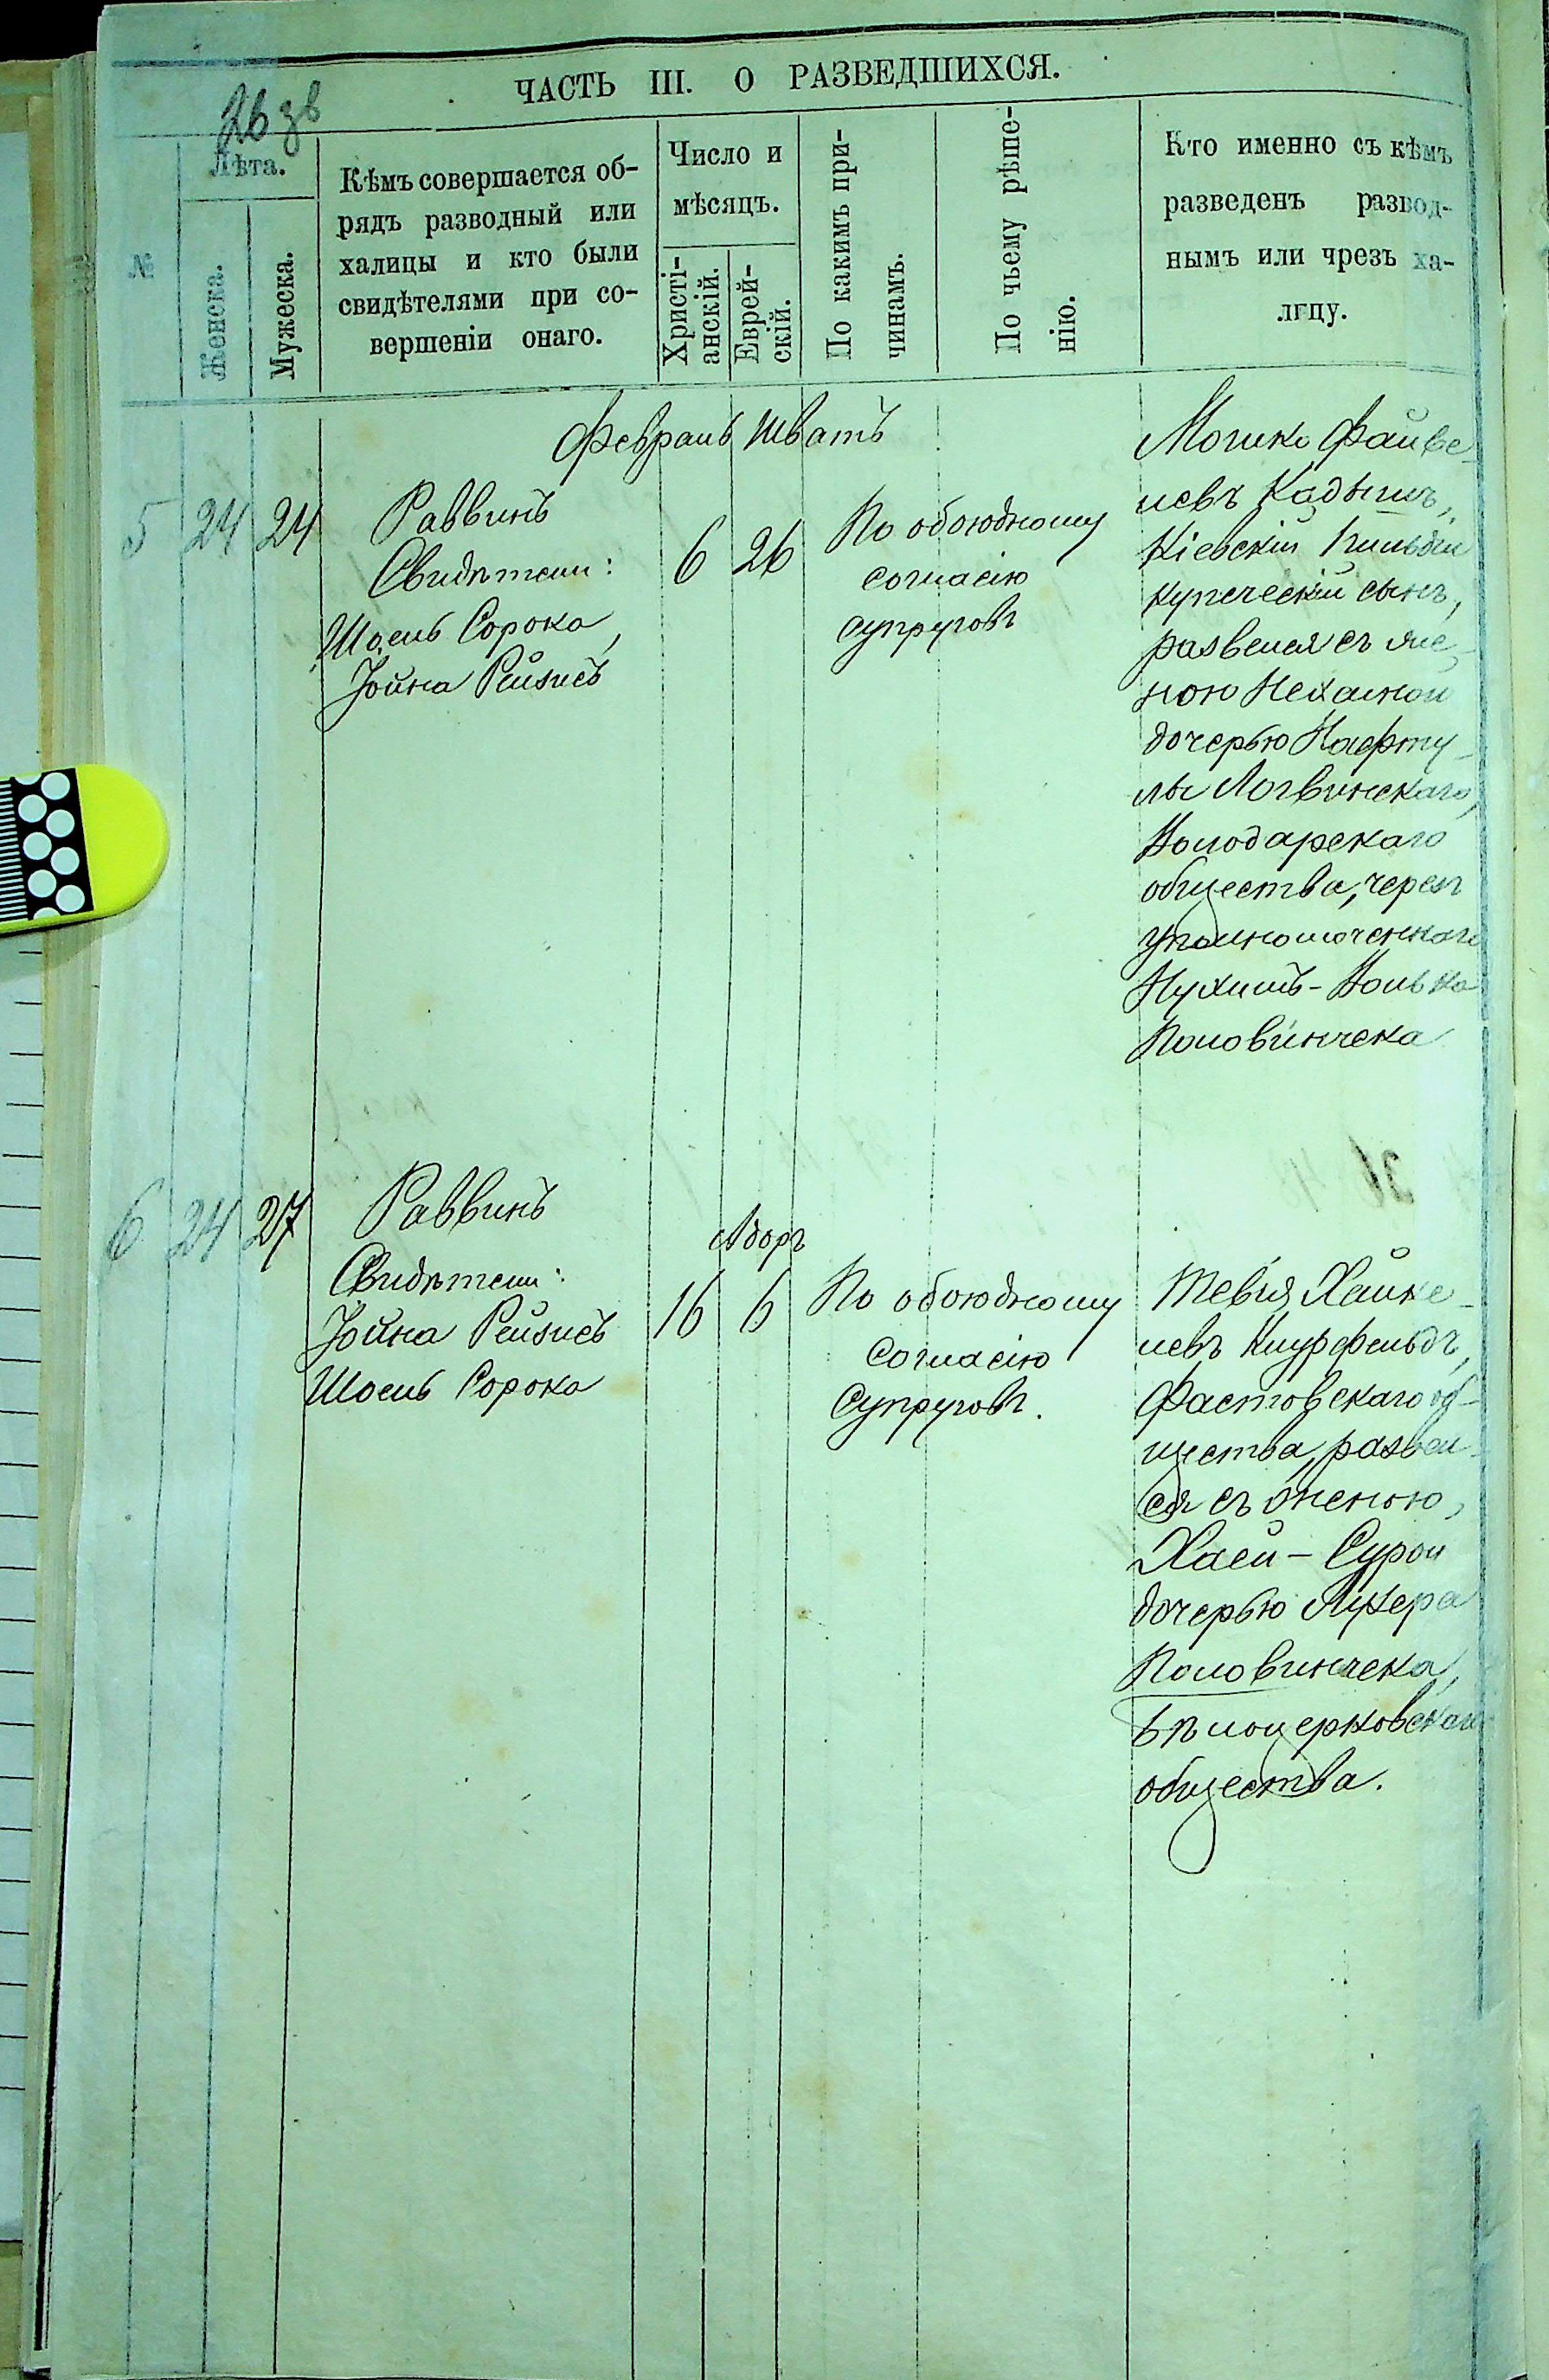 ЧАСТЬ III. О РАЗВЕДШИХСЯ.
26 зв
№
Лѣта.
Женска.
Мужеска.
Кѣмъ совершается об-
рядъ разводный или
халицы и кто были
свидѣтелями при со-
вершеніи онаго.
Число и
мѣсяцъ.
Христі-
анскій.
Еврей-
скій.
По какимъ при-
чинамъ.
По чьему рѣше-
нію.
Кто именно съ кѣмъ
разведенъ развод-
нымъ или чрезъ ха-
лицу.
Февраль Шватъ
5 24 24
Раввинъ
Свидѣтели:
Шоель Сорока,
Іойна Рейзисъ
6 26
По обоюдному
согласію
супруговъ
Мошко Файве-
левъ Кадышъ,
Кіевскій гильдіи
купеческій сынъ,
развелся съ же-
ною Нехамой
дочерью Нафту-
лы Логвинскаго,
Володарскаго
общества, черезъ
уполномоченнаго
Нухимъ-Волька
Половинчека
6 24 27
Раввинъ
Свидѣтели:
Іойна Рейзисъ
Шоель Сорока
Адоръ
16 6
По обоюдному
согласію
супруговъ.
Тевія Хайке-
левъ
Фастовскаго об-
щества, развел-
ся съ женою,
Хаей-Сурой
дочерью Лузера
Половинчека,
Бѣлоцерковскаго
общества.